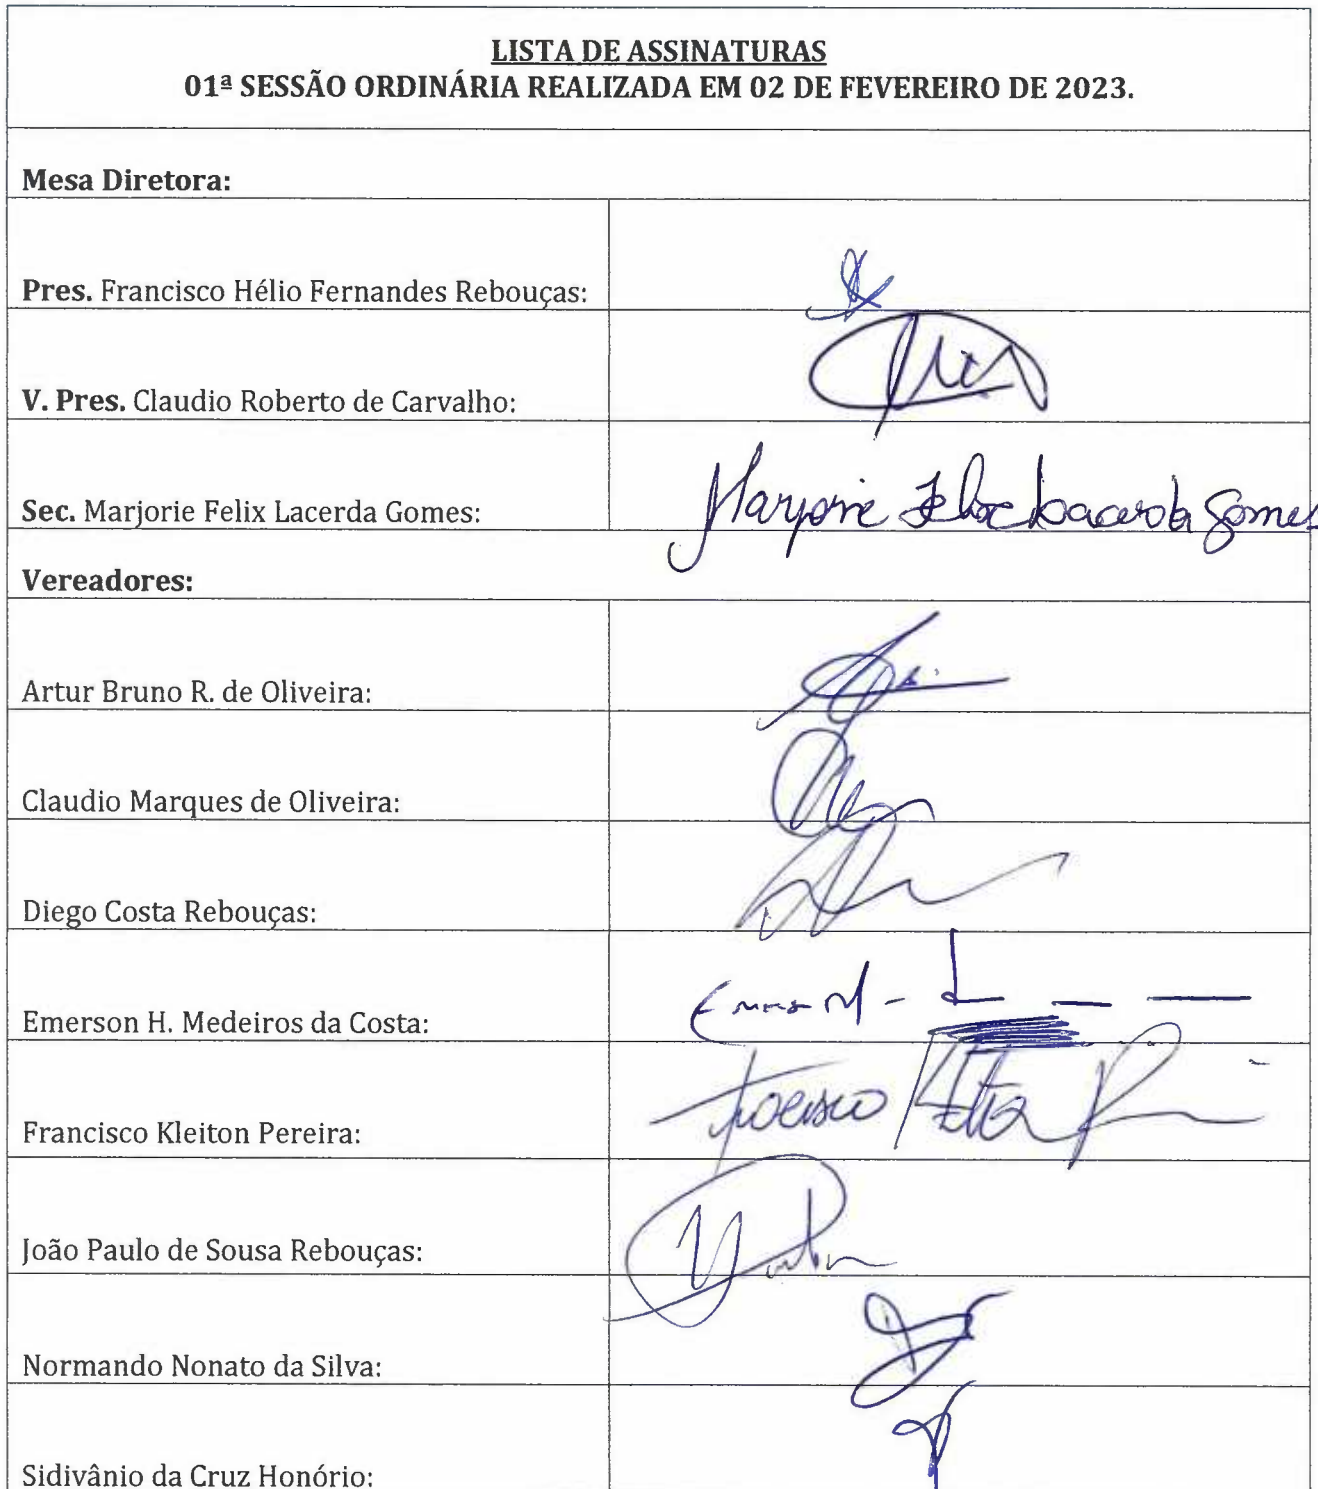 LISTA DE ASSINATURAS
01ª SESSÃO ORDINÁRIA REALIZADA EM 02 DE FEVEREIRO DE 2023.
Mesa Diretora:
Pres. Francisco Hélio Fernandes Rebouças:
V. Pres. Claudio Roberto de Carvalho:
Sec. Marjorie Felix Lacerda Gomes: Marjorie Felix Lacerda Gomes
Vereadores:
Artur Bruno R. de Oliveira:
Claudio Marques de Oliveira:
Diego Costa Rebouças:
Emerson H. Medeiros da Costa:
Francisco Kleiton Pereira: Francisco
João Paulo de Sousa Rebouças:
Normando Nonato da Silva:
Sidivânio da Cruz Honório: